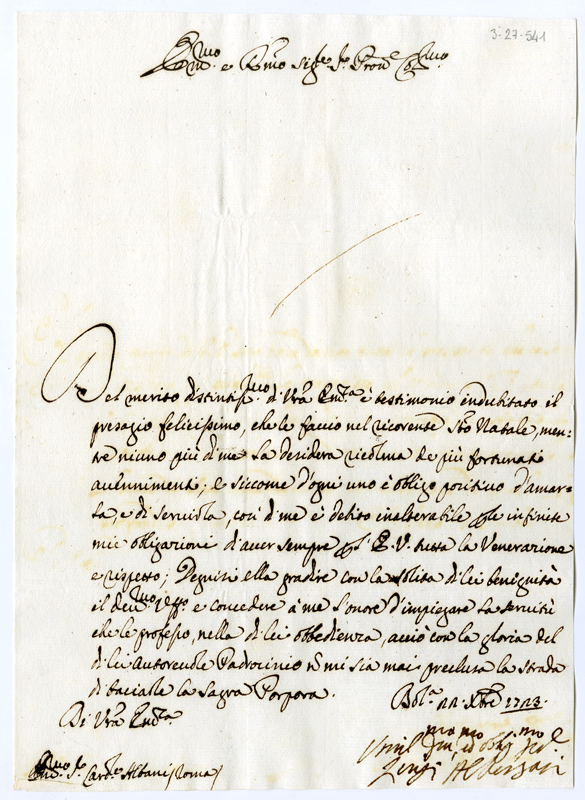 3-27-541
Em.mo e R.mo Sig.e P.n Pron.e Col.mo
Del merito distintiss.mo di Vra Em.za è testimonio indubitato il
presagio felicissimo, che le faccio nel ricorente S.to Natale, men=
tre niuno più di me La desidera ricolma de più fortunati
auuenimenti; e siccome d'ogni uno è obligo positivo d'amar=
la, e di seruirla, così di me è debito inalterabile p le infinite
mie obligazioni d'auer sempre p l'E. V. tutta la Venerazione
e rispetto; Degnisi ella gradire con la solita di lei benignità
il deu.mo uff.o e concedere à me l'onore d'impiegare La seruitù
che le professo, nella di lei obbedienza, acciò con la gloria del
di lei Autoreuole Padrocinio nõ mi sia mai preclusa la strada
di baciarle la Sagra Porpora.
Bol.a 22 Xbre 1723.
Di Vra Em.za
Umil.mo Deu.mo ed obblig.mo Ser.e
Luigi
Em.mo S.r Card.e Albani / Roma /